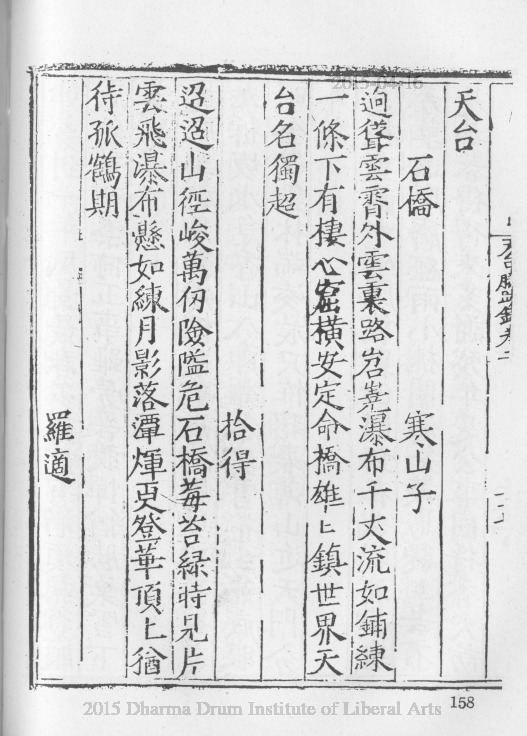 2015-04-16
天台勝蹟錄卷一
天台
石橋 寒山子
迥聳雲霄外雲裏路岧嶤瀑布千丈流如鋪練
一條下有棲心窟橫安定命橋雄〻鎮世界天
台名獨超
拾得
迢迢山徑峻萬仞險隘危石橋莓苔綠時見片
雲飛瀑布懸如練月影落潭煇更登華頂上猶
待孤鶴期
羅適
158
2015 Dharma Drum Institute of Liberal Arts